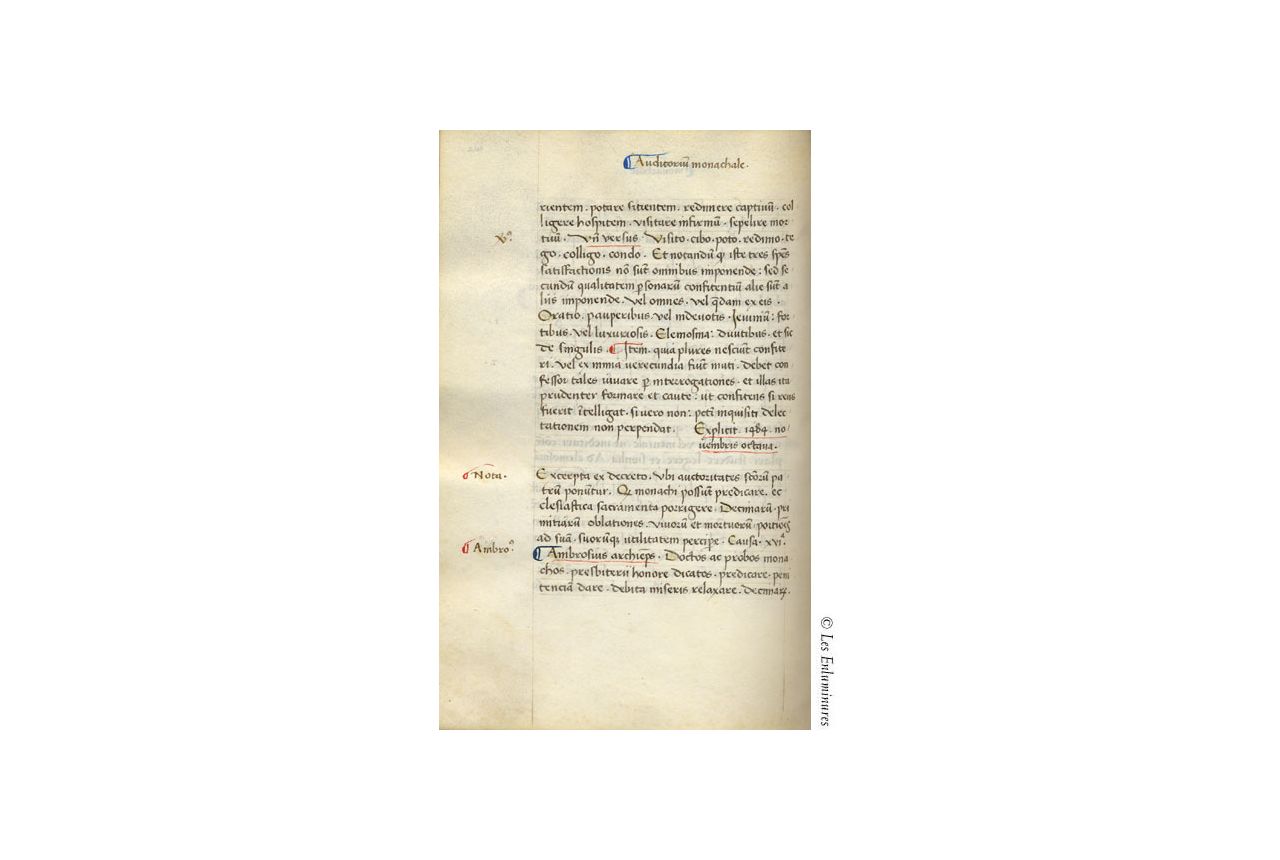 ¶ Auditoriū monachale.
rientem. potare sitientem. redimere captiuū. col
ligere hospitem. visitare infirmū. sepelire mor
vº.
tuū. Vn̄ versus. Visito. cibo. poto. redimo. te
go. colligo. condo. Et notandū ꝙ iste tres sp̄es
satisfactionis nō sūt omnibus imponende: sed se
cundū qualitatem ꝑsonarū confitentiū alie sūt a
liis imponende. vel omnes. vel q̄dam ex eis.
Oratio. pauperibus. vel indeuotis. Ieiuniū: for
tibus. vel luxuriosis. Elemosina: diuitibus. et sic
de singulis. ¶ Item. quia plures nesciūt confite
ri. vel ex nimia verecundia fiūt muti. debet con
fessor tales iuuare ꝑ interrogationes. et illas ita
prudenter formare et caute: ut confitens si reus
fuerit ītelligat. si uero non: peti inquisiti delec
tationem non perpendat. Explicit. 1484. no
uembris octaua.
¶ Nota.
Excerpta ex decreto. Vbi auctoritates sc̄torū pa
trū ponūtur. Q̄ monachi possūt predicare. ec
clesiastica sacramenta porrigere. Decimarū. pri
mitiarū oblationes. viuorū et mortuorū. portiōes
ad suā. suorūqꝫ utilitatem percipe. Causa. xviª.
¶ Ambroº.
¶ Ambrosius archiep̄s. Doctos ac probos mona
chos. presbiterii honore dicatos. predicare. peni
tenciā dare. debita miseris relaxare. decimaꝝ.
© Les Enluminures